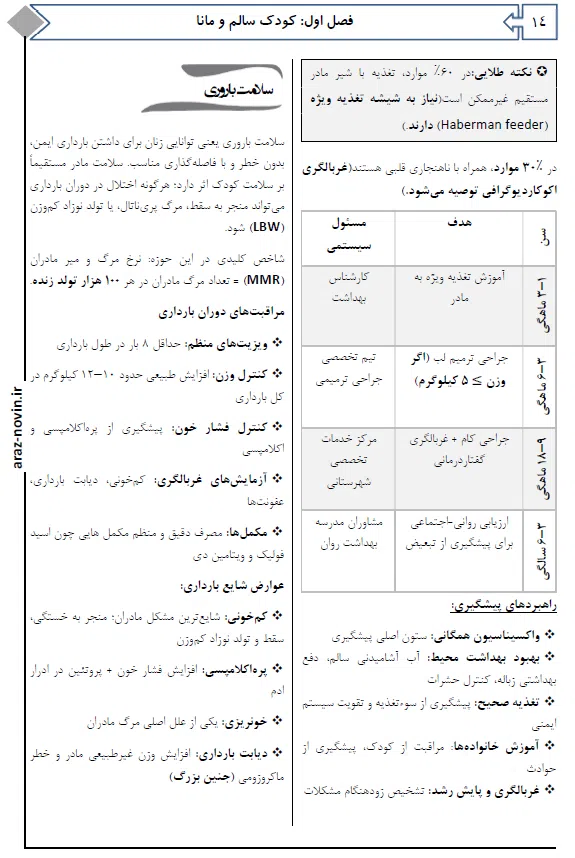 ١٤
فصل اول: کودک سالم و مانا
✪ نکته طلایی:در ۶۰٪ موارد، تغذیه با شیر مادر
مستقیم غیرممکن است(نیاز به شیشه تغذیه ویژه
(Haberman feeder) دارند.)
در ۳۰٪ موارد، همراه با ناهنجاری قلبی هستند(غربالگری
اکوکاردیوگرافی توصیه می‌شود.)
سن
هدف
مسئول
سیستمی
۱–۳ ماهگی
آموزش تغذیه ویژه به
مادر
کارشناس
بهداشت
۳–۶ ماهگی
جراحی ترمیم لب (اگر
وزن ≥ ۵ کیلوگرم)
تیم تخصصی
جراحی ترمیمی
۹–۱۸ ماهگی
جراحی کام + غربالگری
گفتاردرمانی
مرکز خدمات
تخصصی
شهرستانی
۳–۶ سالگی
ارزیابی روانی-اجتماعی
برای پیشگیری از تبعیض
مشاوران مدرسه
بهداشت روان
راهبردهای پیشگیری:
❖ واکسیناسیون همگانی: ستون اصلی پیشگیری
❖ بهبود بهداشت محیط: آب آشامیدنی سالم، دفع
بهداشتی زباله، کنترل حشرات
❖ تغذیه صحیح: پیشگیری از سوءتغذیه و تقویت سیستم
ایمنی
❖ آموزش خانواده‌ها: مراقبت از کودک، پیشگیری از
حوادث
❖ غربالگری و پایش رشد: تشخیص زودهنگام مشکلات
سلامت باروری
سلامت باروری یعنی توانایی زنان برای داشتن بارداری ایمن،
بدون خطر و با فاصله‌گذاری مناسب. سلامت مادر مستقیماً
بر سلامت کودک اثر دارد؛ هرگونه اختلال در دوران بارداری
می‌تواند منجر به سقط، مرگ پری‌ناتال، یا تولد نوزاد کم‌وزن
(LBW) شود.
شاخص کلیدی در این حوزه: نرخ مرگ و میر مادران
(MMR) = تعداد مرگ مادران در هر ۱۰۰ هزار تولد زنده.
مراقبت‌های دوران بارداری
❖ ویزیت‌های منظم: حداقل ۸ بار در طول بارداری
❖ کنترل وزن: افزایش طبیعی حدود ۱۰–۱۲ کیلوگرم در
کل بارداری
❖ کنترل فشار خون: پیشگیری از پره‌اکلامپسی و
اکلامپسی
❖ آزمایش‌های غربالگری: کم‌خونی، دیابت بارداری،
عفونت‌ها
❖ مکمل‌ها: مصرف دقیق و منظم مکمل هایی چون اسید
فولیک و ویتامین دی
عوارض شایع بارداری:
❖ کم‌خونی: شایع‌ترین مشکل مادران؛ منجر به خستگی،
سقط و تولد نوزاد کم‌وزن
❖ پره‌اکلامپسی: افزایش فشار خون + پروتئین در ادرار
ادم
❖ خونریزی: یکی از علل اصلی مرگ مادران
❖ دیابت بارداری: افزایش وزن غیرطبیعی مادر و خطر
ماکروزومی (جنین بزرگ)
araz-novin.ir